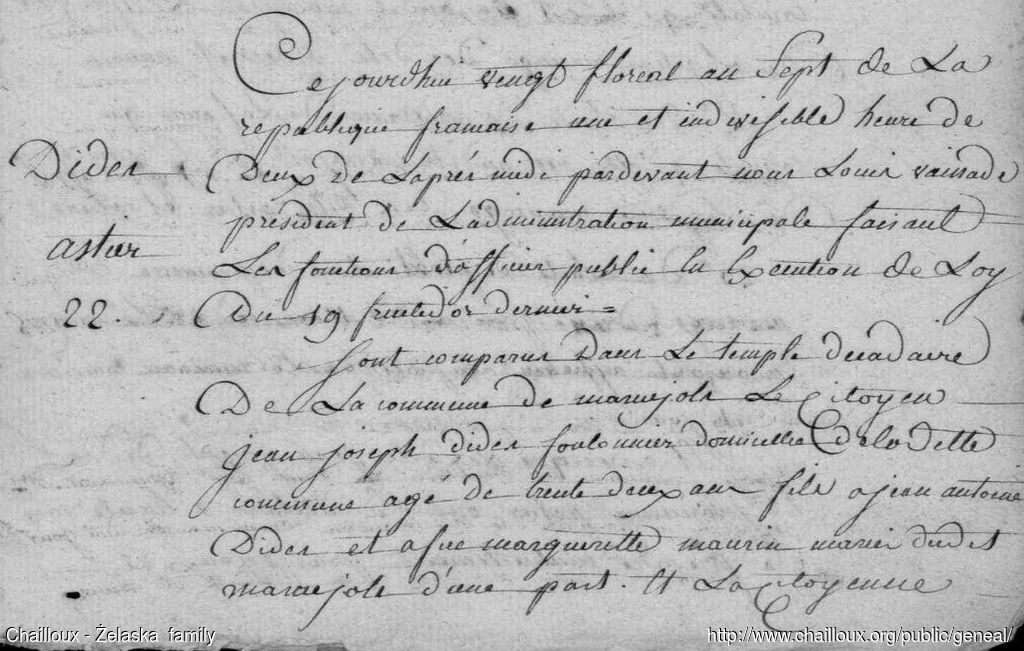 Dides
astier
22.
Cejourdhui vingt floreal an Sept de La
republique francaise une et indivisible heure de
Deux de Laprés midi pardevant nous Louis
président de Ladministration municipale faisant
Les fonctions d'officier public En Execution de Loy
Du 19 fructidor dernier =
Sont comparus Dans Le temple decadaire
De La commune de maruejols Le Citoyen
jean joseph dides foulonnier domicilié de la dette
commune agé de trente deux ans fils a jean antoine
Dides et a fue margueritte maurin mariés dudit
maruejols d'une part. Et La Citoyenne
Chailloux - Żelaska family
http://www.chailloux.org/public/geneal/